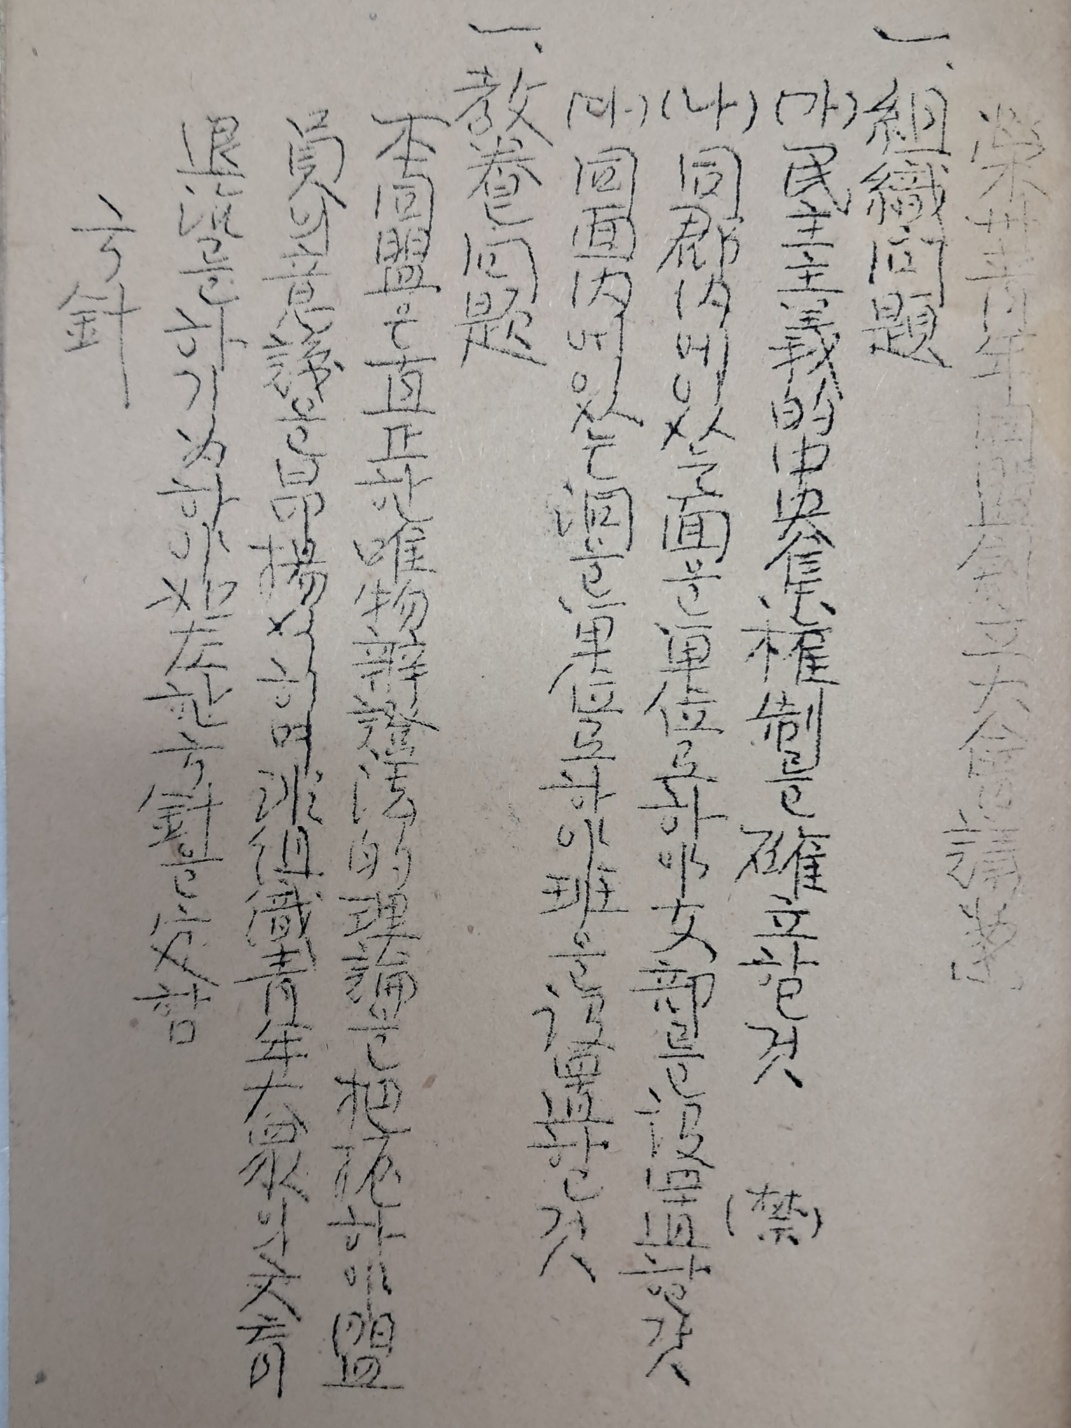 榮州青年同盟創立大會議案
一、組織问題
(가) 民主主義的中央集権制를確立할것 (禁)
(나) 同郡內에있는面을單位로하야支部를設置할것
(다) 同面內에있는洞을單位로하야班을設置할것
一、教養问題
本同盟은眞正한唯物辨證法的理論을把握하야盟
員의意識을昂揚식히며未組織青年大衆의文盲
退治를하기爲하야如左한方針을定함
方針